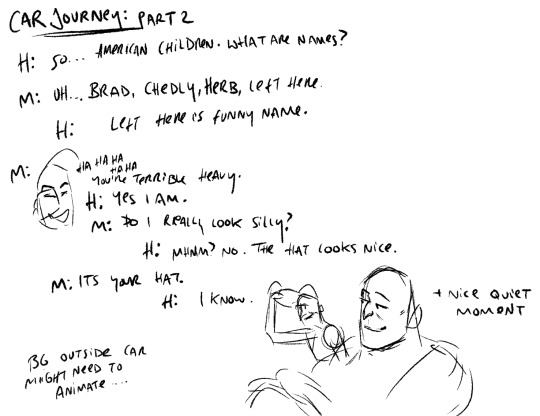 CAR JOURNEY: PART 2
H: SO... AMERICAN CHILDREN. WHAT ARE NAMES?
M: UH... BRAD, CHEDLY, HERB, LEFT HERE.
H: LEFT HERE IS FUNNY NAME.
M: HA HA HA
HA HA
YOU'RE TERRIBLE HEAVY.
H: YES I AM.
M: DO I REALLY LOOK SILLY?
H: MHMM? NO. THE HAT LOOKS NICE.
M: ITS YOUR HAT.
H: I KNOW.
+ NICE QUIET
MOMENT
BG OUTSIDE CAR
MIGHT NEED TO
ANIMATE....